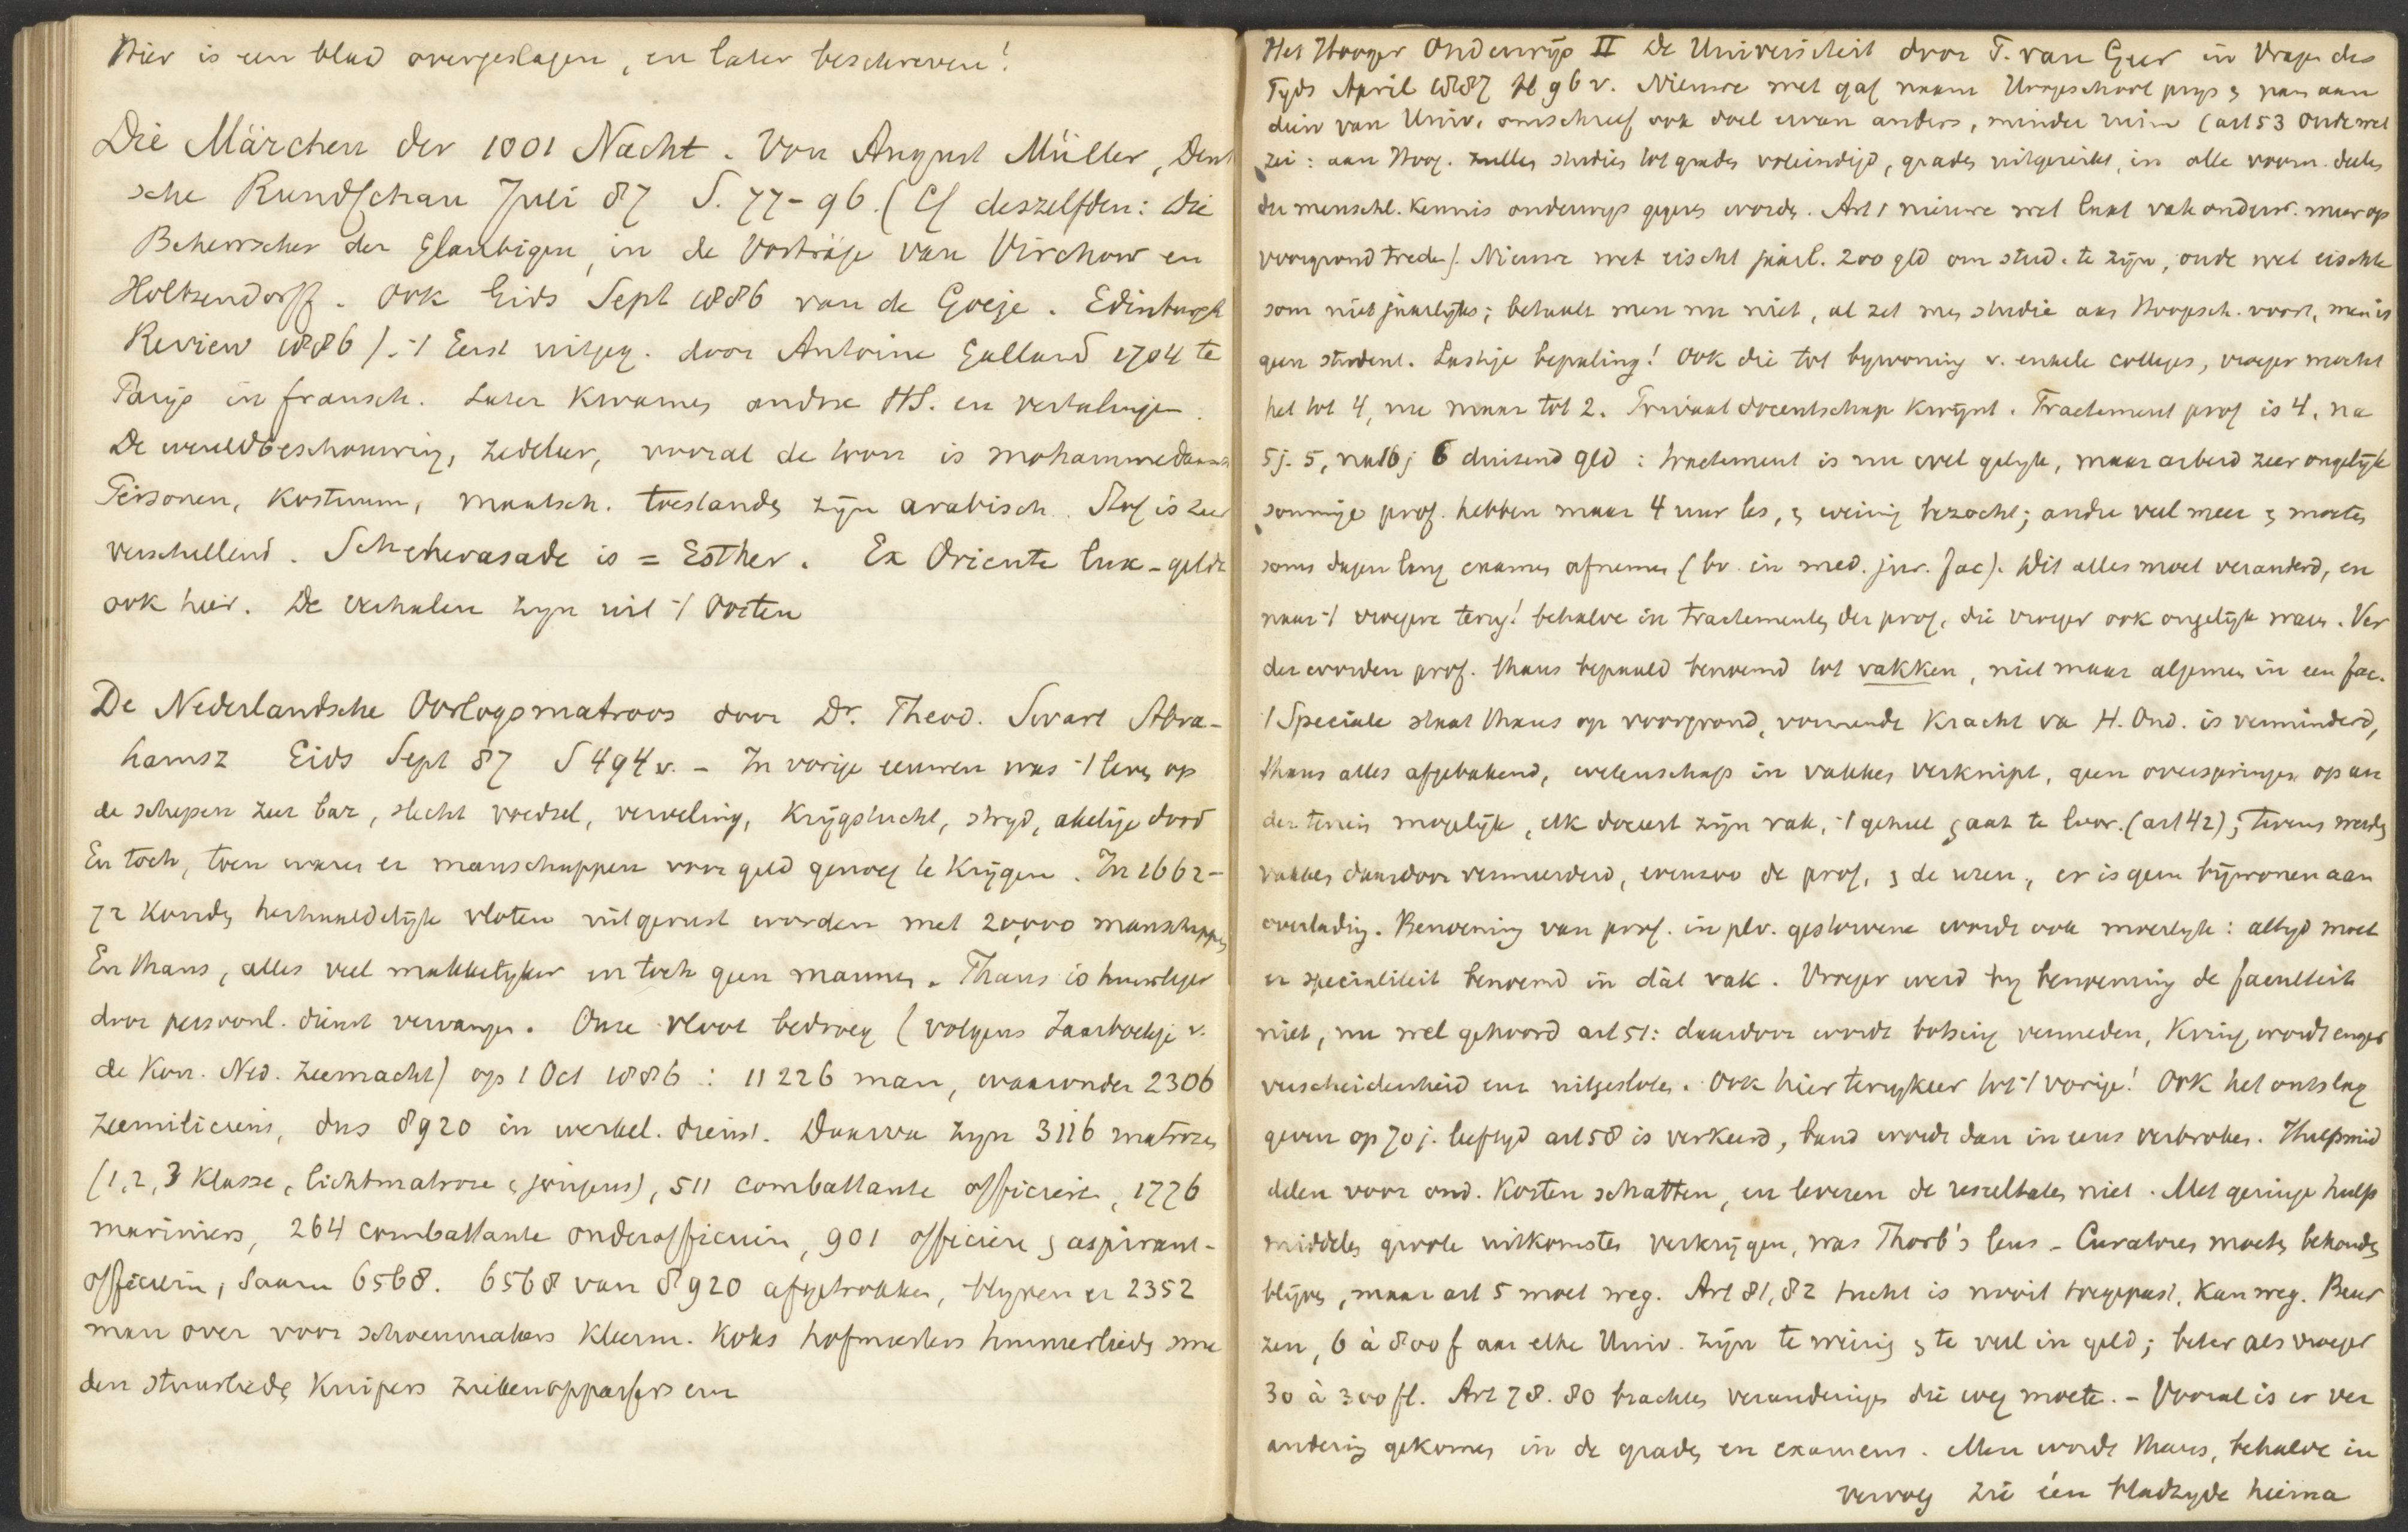 Hier is een blad overgeslagen, en later beschreven!
Die Märchen der 1001 Nacht. Von August Müller, Deut
sche Rundschau Juli 87 S. 77-96. (Cf deszelfden: Die
Beherrscher der Glaubigen, in de Vorträge van Virchow en
Holtzendorff. Ook Gids Sept 1886 van de Goeje. Edinburgh
Review 1886). -/ Eerst uitgeg. door Antoine Galland 1704 te
Parijs in fransch. Later kwamen andre HS. en vertalingen.
De wereldbeschouwing, zedeleer, vooral de toon is mohammedaansch
Personen, kostuum, maatsch. toestanden zijn arabisch. Stof is zeer
verschillend. Scheherasade is = Esther. Ex Oriente lux - geldt
ook hier. De verhalen zijn uit -/ Oosten
De Nederlandsche Oorlogsmatroos door Dr. Theod. Swart Abra-
hamsz Gids Sept 87 S 494 v. - In vorige eeuwen was -/ leven op
de schepen zeer bar, slecht voedsel, verveling, krijgstucht, strijd, akelige dood
En toch, toen waren er manschappen voor geld genoeg te krijgen. In 1662-
72 konden herhaaldelijk vloten uitgerust worden met 20,000 manschappen
En thans, alles veel makkelijker en toch geen mannen. Thans is huurleger
door persoonl. dienst vervangen. Onze vloot bedroeg (volgens Jaarboekje v.
de Kon. Ned. Zeemacht) op 1 Oct 1886 : 11226 man, waaronder 2306
zeemiliciens, dus 8920 in werkel. dienst. Daarvan zijn 3116 matrozen
(1, 2, 3 klasse, lichtmatroze & jongens), 511 combattante officiere, 1276
mariniers, 264 combattante onderofficieren, 901 officiere & aspirant-
officieren, saam 6568. 6568 van 8920 afgetrokken, blijven er 2352
man over voor schoenmakers kleerm. koks hofmeesters timmerlieden sme
den stuurlieden kuipers ziekenoppassers enz
Het Hooger Onderwijs II De Universiteit door T. van Geer in Vragen des
Tijds April 1887 bl 96 v. Nieuwe wet gaf naam Hoogeschool prijs & nam aan
dien van Univ. omschreef ook doel ervan anders, minder ruim (art 53 oude wet
zei: aan Hoog. zullen studies tot graden voleindigd, graden uitgereikt, in alle voorn. deelen
der menschl. kennis onderwijs gegeven worden. Art 1 nieuwe wet laat vakonderw. meer op
voorgrond treden). Nieuwe wet eischt jaarl. 200 gld om stud. te zijn, oude wet eischte
som niet jaarlijks; betaalt men nu niet, al zet men studie aan Hoogesch. voort, men is
geen student. Lastige bepaling! Ook die tot bijwoning v. enkele colleges, vroeger mocht
het tot 4, nu maar tot 2. Privaatdocentschap kwijnt. Tractement prof is 4, na
5 j. 5, na 10 j 6 duizend gld : tractement is nu wel gelijk, maar arbeid zeer ongelijk
sommige prof. hebben maar 4 uur les, & weinig bezocht; andre veel meer & moeten
soms dagen lang examens afnemen (bv. in med. jur. fac). Dit alles moet veranderd, en
naar -/ vroegere terug! behalve in tractementen der prof, die vroeger ook ongelijk waren. Ver
der worden prof. thans bepaald benoemd tot vakken, niet maar algemeen in een fac.
-/ Speciale staat thans op voorgrond, vormende kracht va H. Ond. is verminderd,
thans alles afgebakend, wetenschap in vakken verknipt, geen overspringen op an
der terrein mogelijk, elk doceert zijn vak, -/ geheel gaat te loor. (art 42); tevens werden
vakken daardoor vermeerderd, evenzoo de prof, & de uren, er is geen bijwonen aan
overlading. Benoeming van prof. in plv. gestorvene wordt ook moeilyk: altijd moet
er specialiteit benoemd in dàt vak. Vroeger werd bij benoeming de faculteit
niet, nu wel gehoord art 51: daardoor wordt botsing vermeden, kring wordt enger
verscheidenheid enz uitgesloten. Ook hier terugkeer tot -/ vorige! Ook het ontslag
geven op 70 j. leeftijd art 58 is verkeerd, band wordt dan in eens verbroken. Hulpmid
delen voor ond. kosten schatten, en leveren de resultaten niet. Met geringe hulp
middelen groote uitkomsten verkrijgen, was Thorb's leus - Curatoren moeten behouden
blijven, maar art 5 moet weg. Art 81, 82 tucht is nooit toegepast, kan weg. Beur
zen, 6 à 800 f aan elke Univ. zijn te weinig & te veel in geld; beter als vroeger
30 à 300 fl. Art 78. 80 brachten veranderingen die weg moeten. - Vooral is er ver
andering gekomen in de graden en examens. Men wordt thans, behalve in
vervolg zie één bladzijde hierna